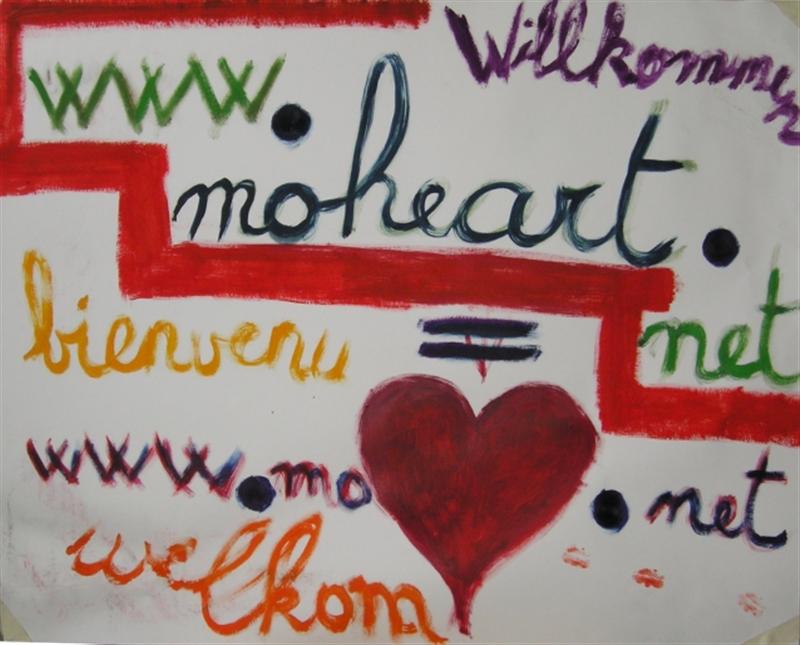 Willkommen
www.
moheart.
net
bienvenu
=
www.mo .net
welkom